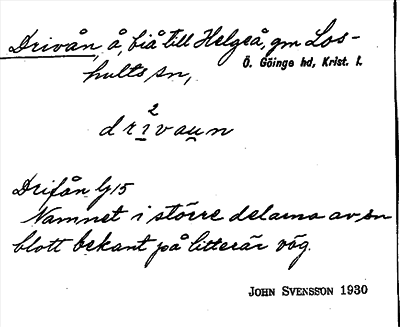 Drivån, å, biå till Helgeå, gm Los-
hults sn, Ö. Göinge hd, Krist. l.
2
drivaun
Drifån Gj15
Namnet i större delarna av sn
blott bekant på litterär väg.
JOHN SVENSSON 1930